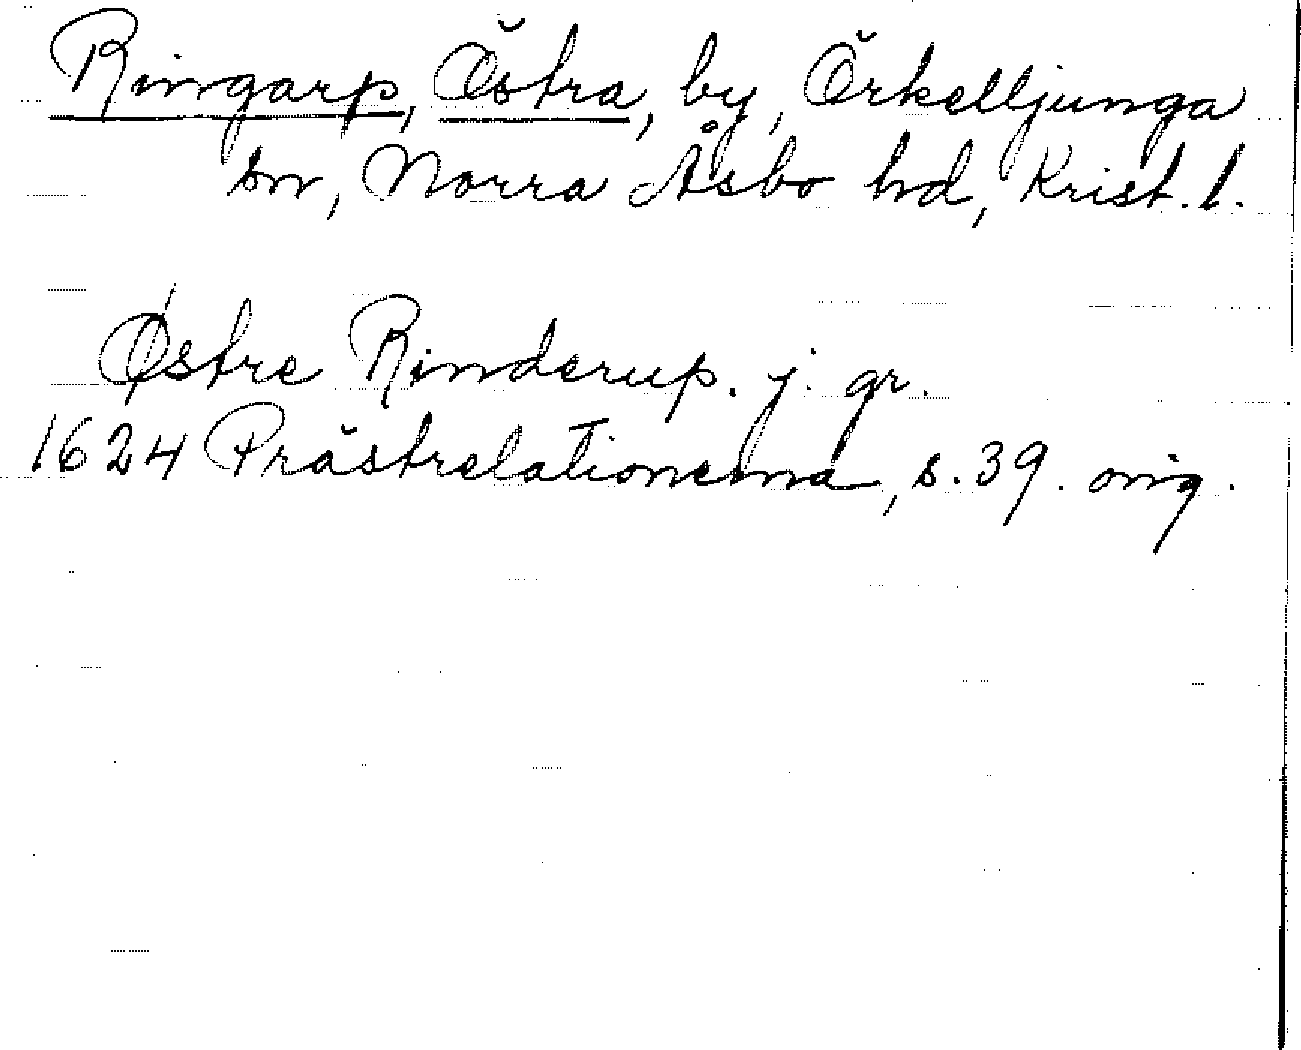 Ringarp, Östra, by, Örkelljunga
sn, Norra Åsbo hd, Krist. l.
Østre Rinderup. j. gr.
1624 Prästrelationerna, s. 39. orig.